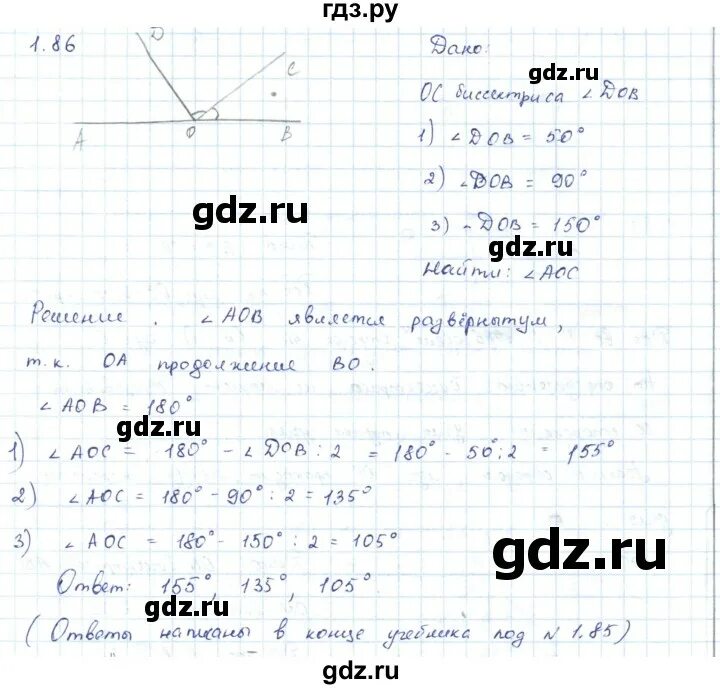 гдз.ру
1.86
D
C
A
O
B
Дано:
gdz.ru
ОС биссектриса ∠DOB
1) ∠DOB = 50°
2) ∠DOB = 90°
gdz.ru
3) ∠DOB = 150°
gdz.ru
Найти: ∠AOC
Решение. ∠AOB является развёрнутум,
т.к. OA продолжение BO.
∠AOB = 180°
gdz.ru
1) ∠AOC = 180° - ∠DOB : 2 = 180° - 50° : 2 = 155°
2) ∠AOC = 180° - 90° : 2 = 135°
3) ∠AOC = 180° - 150° : 2 = 105°
gdz.ru
Ответ: 155°, 135°, 105°.
gdz.ru
(Ответы написаны в конце учебника под № 1.85)
gdz.ru